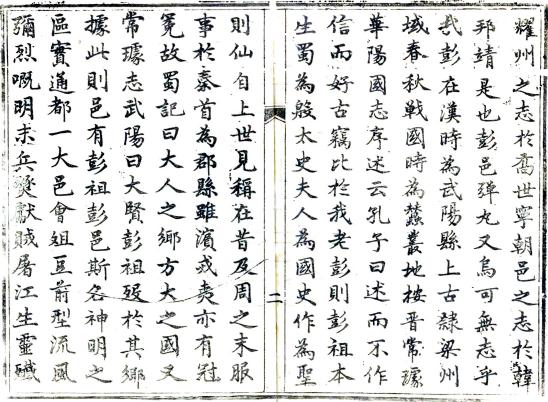 耀州之志於喬世寧朝邑之志於韓
邦靖是也彭邑彈丸又烏可無志乎
哉彭在漢時為武陽縣上古隸梁州
域春秋戰國時為蠶叢地按晉常璩
華陽國志序述云孔子曰述而不作
信而好古竊比於我老彭則彭祖本
生蜀為殷太史夫人為國史作為聖
則仙自上世見稱在昔及周之末服
事於秦首為郡縣雖濱戎夷亦有冠
冕故蜀記曰大人之鄉方大之國又
常璩志武陽曰大賢彭祖歿於其鄉
據此則邑有彭祖彭邑斯名神明之
區實通都一大邑會俎豆前型流風
彌烈嘅明末兵燹獻賊屠江生靈殲
二